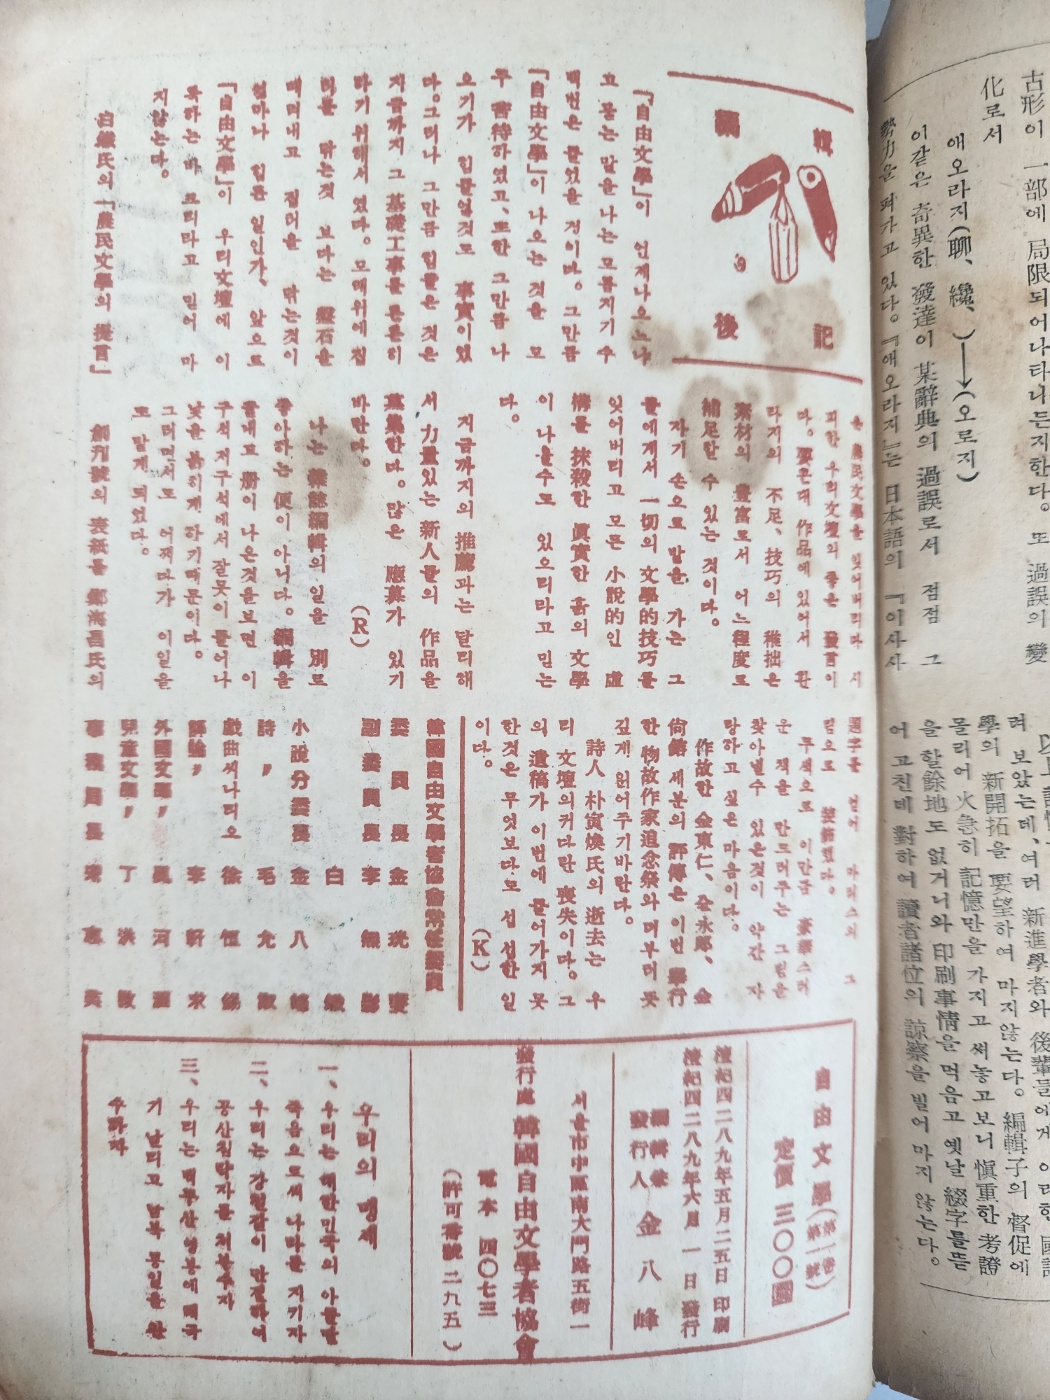 編輯後記
『自由文學』이 언제나 오느냐
고 묻는 말을 나는 모름지기 수
백번은 들었을 것이다。그만큼
『自由文學』이 나오는 것을 모
두 苦待하였고、또한 그만큼 나
오기가 힘들었것도 事實이었
다。그러나 그만큼 힘들은 것은
지금까지 그 基礎工事를 튼튼히
하기 위해서 였다。모래위에 집
터를 닦는것 보다는 盤石을
때려내고 집터을 닦는것이
얼마나 힘든 일인가、앞으로
『自由文學』이 우리文壇에 이
룩하는 바 크리라고 믿어 마
지않는다。
白鐵氏의 「農民文學의 提言」
은 農民文學을 잊어버리다 시
피한 우리文壇의 좋은 發言이
다。要컨대 作品에 있어서 환
타지의 不足、技巧의 稚拙은
素材의 豊富로서 어느程度로
補足할 수 있는 것이다。
자기 손으로 밭을 가는 그
들에게서 一切의 文學的技巧를
잊어버리고 모든 小說的인 虛
構를 抹殺한 眞實한 흙의 文學
이 나올수도 있으리라고 믿는
다。
지금까지의 推薦과는 달리해
서 力量있는 新人들의 作品을
募集한다。많은 應募가 있기
바란다。
(R)
나는 雜誌編輯의 일을 別로
좋아하는 便이 아니다。編輯을
끝내고 册이 나온것을보면 이
구석저구석에서 잘못이 튀어나
낯을 붉히게 하기때문이다。
그러면서도 어쩌다가 이일을
또 맡게 되었다。
創刊號의 表紙를 鄭海昌氏의
題字를 얻어 파리스의 그
림으로 裝飾했다。
무색으로 이만큼 豪華스러
운 책을 만드러주는 그림을
찾아낼수 있은것이 약간 자
랑하고 싶은 마음이다。
作故한 金東仁、全永郎、金
尙鎔 세분의 評傳은 이번 擧行
한 物故作家追念祭와 더부러 뜻
깊게 읽어주기바란다。
詩人 朴寅煥氏의 逝去는 우
리 文壇의커다란 喪失이다。그
의 遺稿가 이번에 들어가지 못
한것은 무엇보다도 섭섭한 일
이다。
(K)
韓國自由文學者協會常任委員
委員長 金珖燮
副委員長 李無影
白鐵
小說分委長 金八峰
詩, 毛允淑
戱曲씨나리오 徐恒錫
評論, 李軒求
外國文學, 異河潤
兒童文學, 丁洪敎
事務局長
自由文學 (第一卷 第一號)
定價 三〇〇圜
檀紀四二八九年五月二五日 印刷
檀紀四二八九年六月 一日 發行
編輯兼
發行人 金八峰
서울市中區南大門路五街一
發行處 韓國自由文學者協會
電本 四〇七三
(許可番號 二九五)
우리의 맹세
一、우리는 대한민국의 아들딸
죽음으로써 나라를 지키자
二、우리는 강철같이 단결하여
공산침략자를 처부수자
三、우리는 백두산영봉에 태극
기 날리고 남북통일을 완
수하자
古形이 一部에 局限되어나타나든지한다。또 過誤의 變
化로서
애오라지(聊、纔、)→(오로지)
이같은 奇異한 發達이 某辭典의 過誤로서 점점 그
勢力을 펴가고 있다。『애오라지』는 日本語의 『이사사
려 보았는데、여러 新進學者와 後輩들에게 이러한 國語
學의 新開拓을 要望하여 마지않는다。編輯子의 督促에
몰리어 火急히 記憶만을 가지고 써놓고보니 愼重한 考證
을 할餘地도 없거니와 印刷事情을 먹음고 옛날 綴字를뜯
어 고친데 對하여 讀者諸位의 諒察을 빌어 마지 않는다。